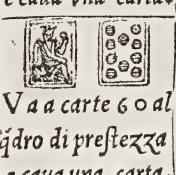 e caua vna carta,
V a a carte 60 al
q̃dro di preſtezza
e caua una carta,